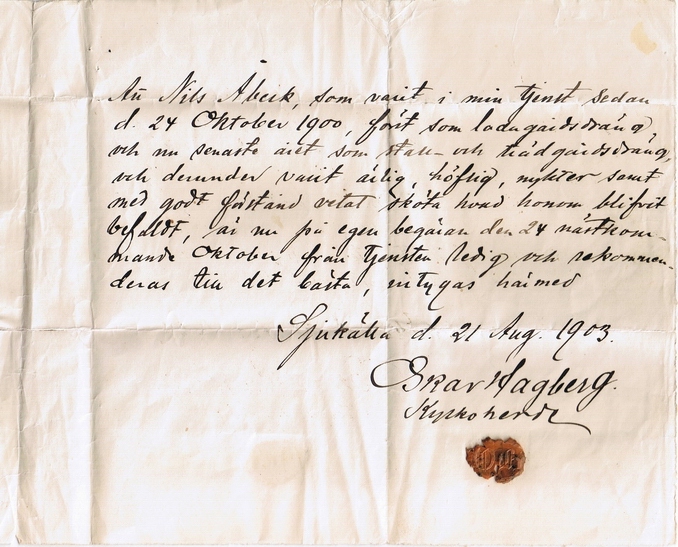 Att Nils Åbeck, som varit i min tjenst sedan
d. 24 Oktober 1900, först som ladugårdsdräng,
och nu senaste året som stall- och trädgårdsdräng,
och derunder varit ärlig, höflig, nykter samt
med godt förstånd vetat sköta hvad honom blifvit
befaldt, är nu på egen begäran den 24 nästkom-
mande Oktober från tjensten ledig och rekommen-
deras till det bästa, intygas härmed
d. 21 Aug. 1903.
Oskar Hagberg.
Kyrkoherde